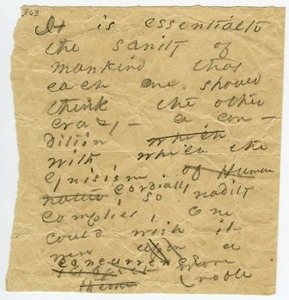 863
It is essential to
the sanity of
mankind that
each one should
think the other
crazy - a con-
dition which
with which the
Cynicism of Human
nature cordially so
complies, one
could wish it
were upon a
concurrence
more
noble